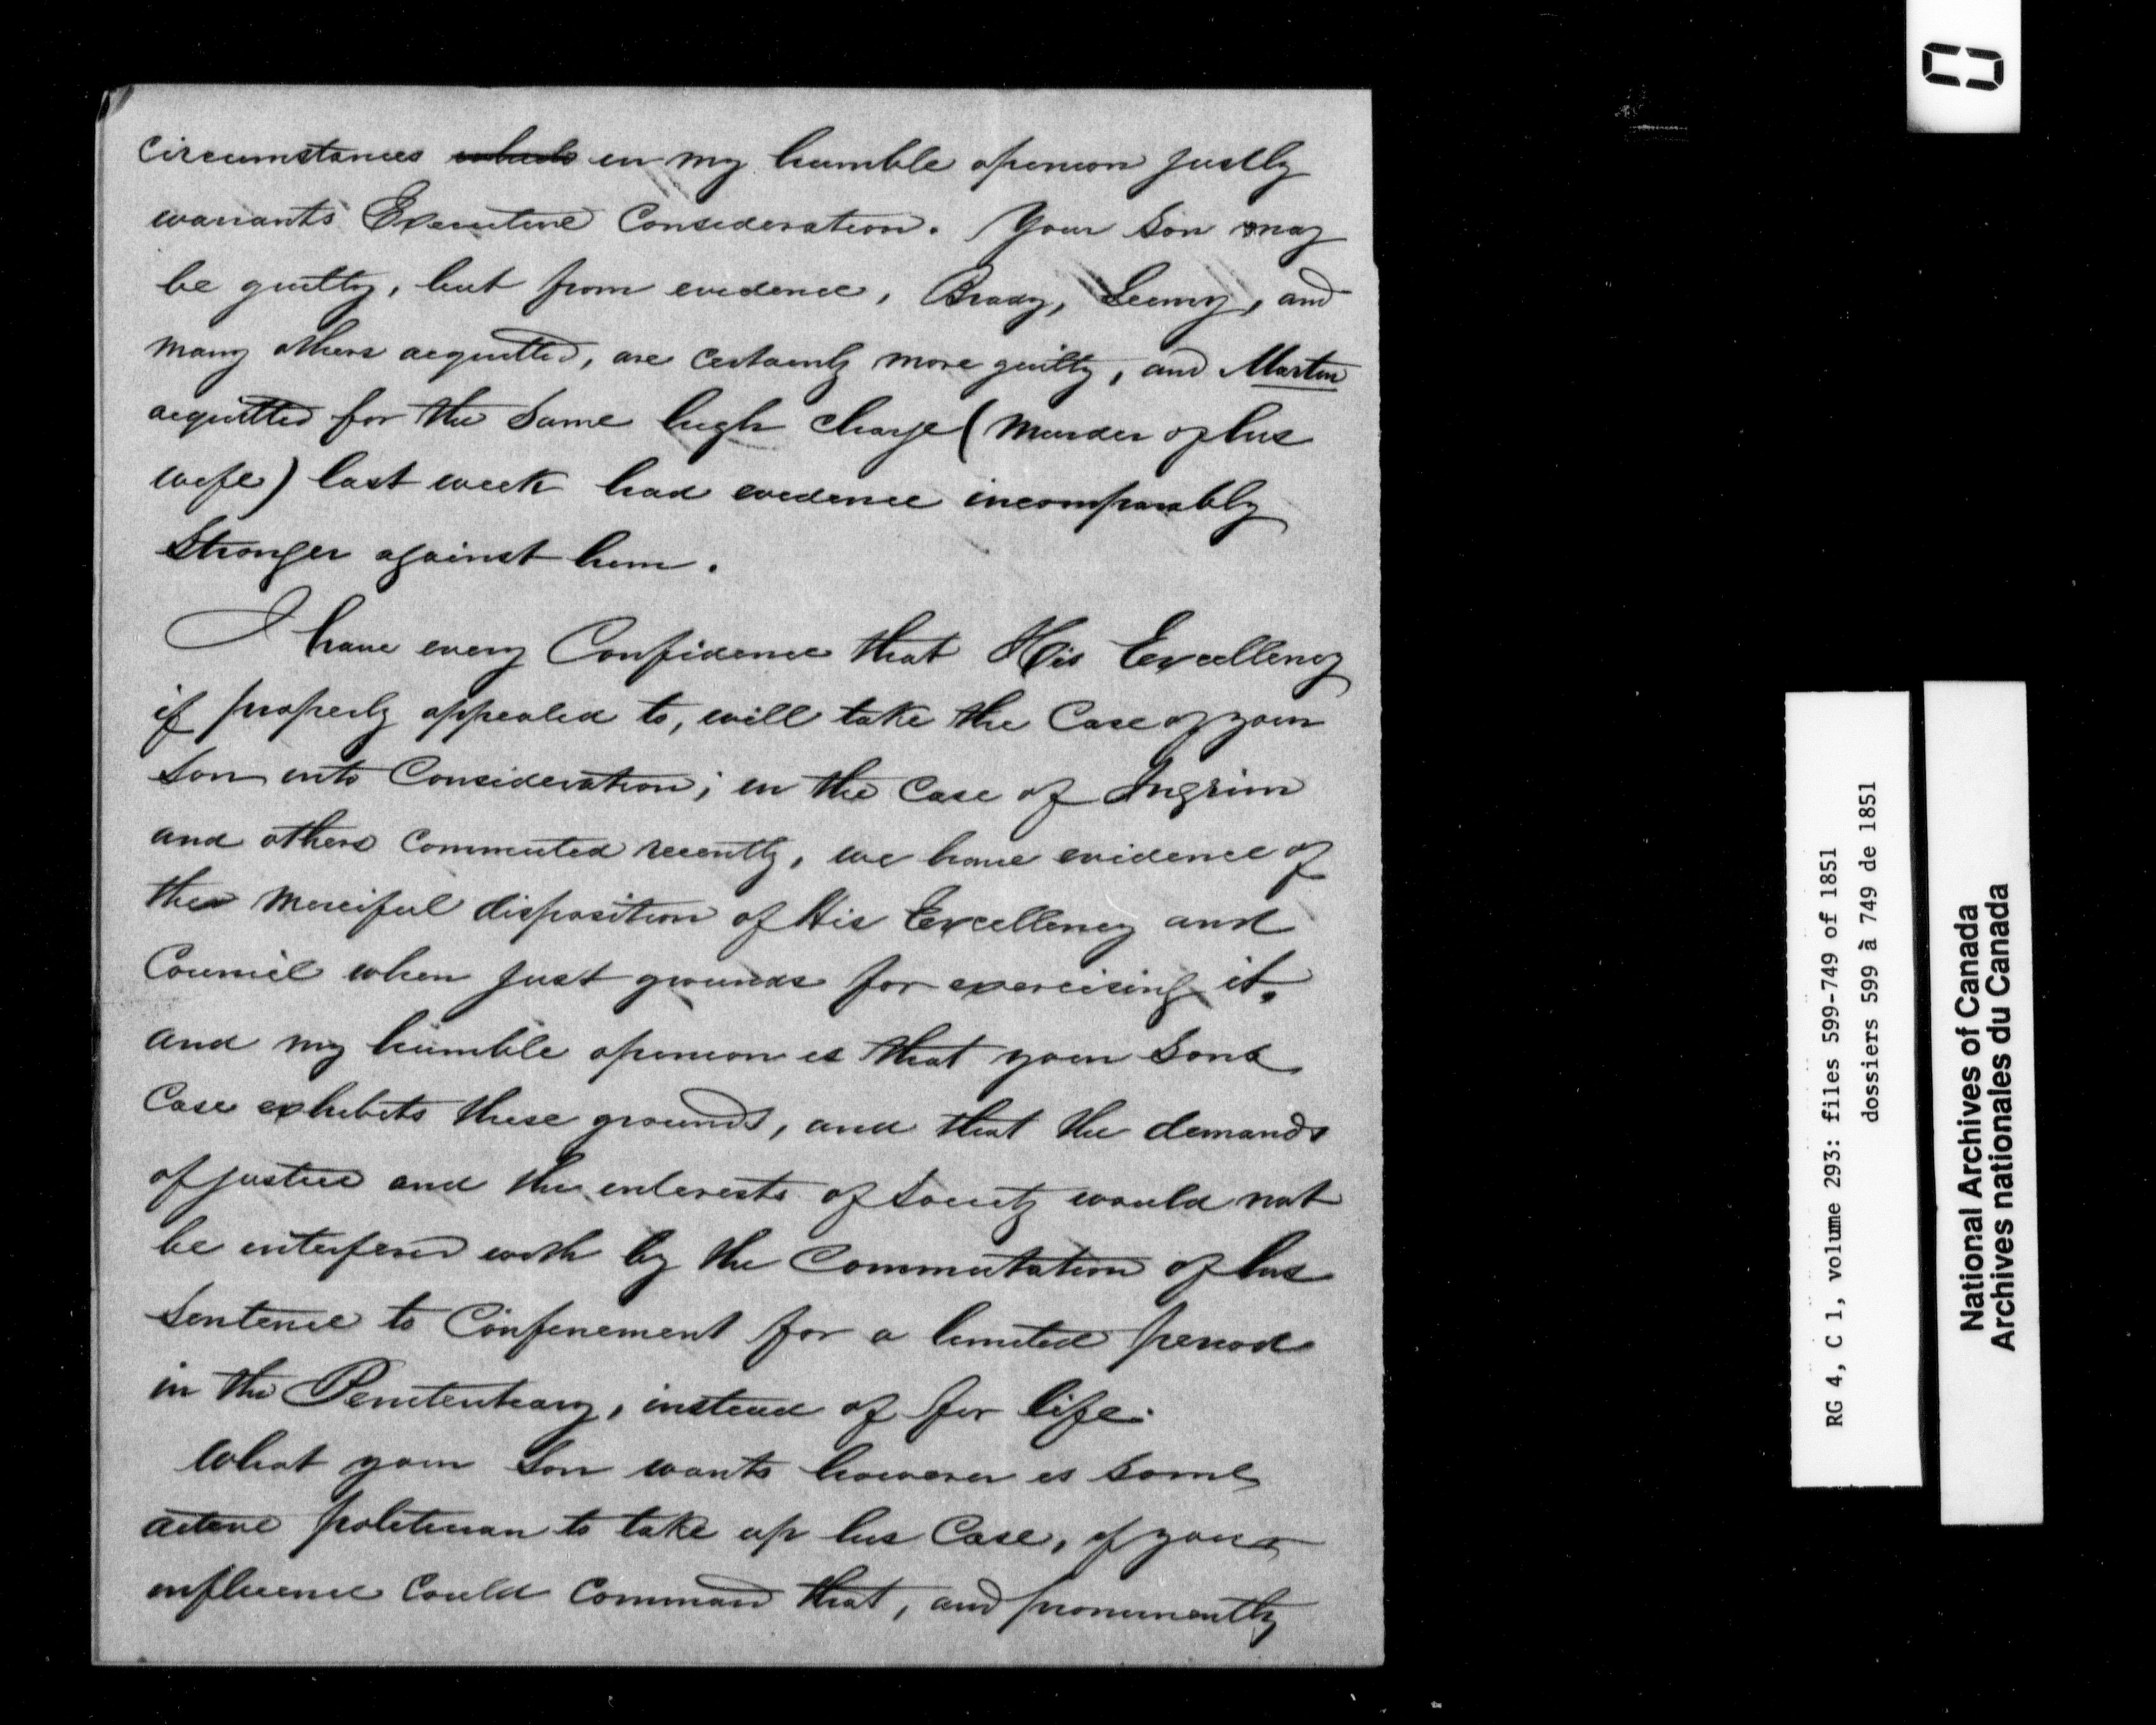 circumstances which in my humble opinion justly
warrants Executive Consideration. Your Son may
be guilty, but from evidence, Brady, and
many others acquitted, are certainly more guilty, and Martin
acquitted for the same high charge (Murder of his
wife) last week had evidence incomparably
Stronger against him.
I have every Confidence that His Excellency
if properly appealed to, will take the Case of your
Son into Consideration; in the Case of Ingrim
and others Commuted recently, we have evidence of
the merciful disposition of His Excellency and
Council when just grounds for exercising it,
and my humble opinion is that your Sons
Case exhibits these grounds, and that the demands
of justice and the interests of Society would not
be interfered with by the Commutation of his
Sentence to Confinement for a limited period
in the Penitentiary, instead of for life.
What your Son wants however is some
active politician to take up his Case, if your
influence Could Command that, and prominently
RG 4, C 1, volume 293: files 599-749 of 1851
dossiers 599 à 749 de 1851
National Archives of Canada
Archives nationales du Canada